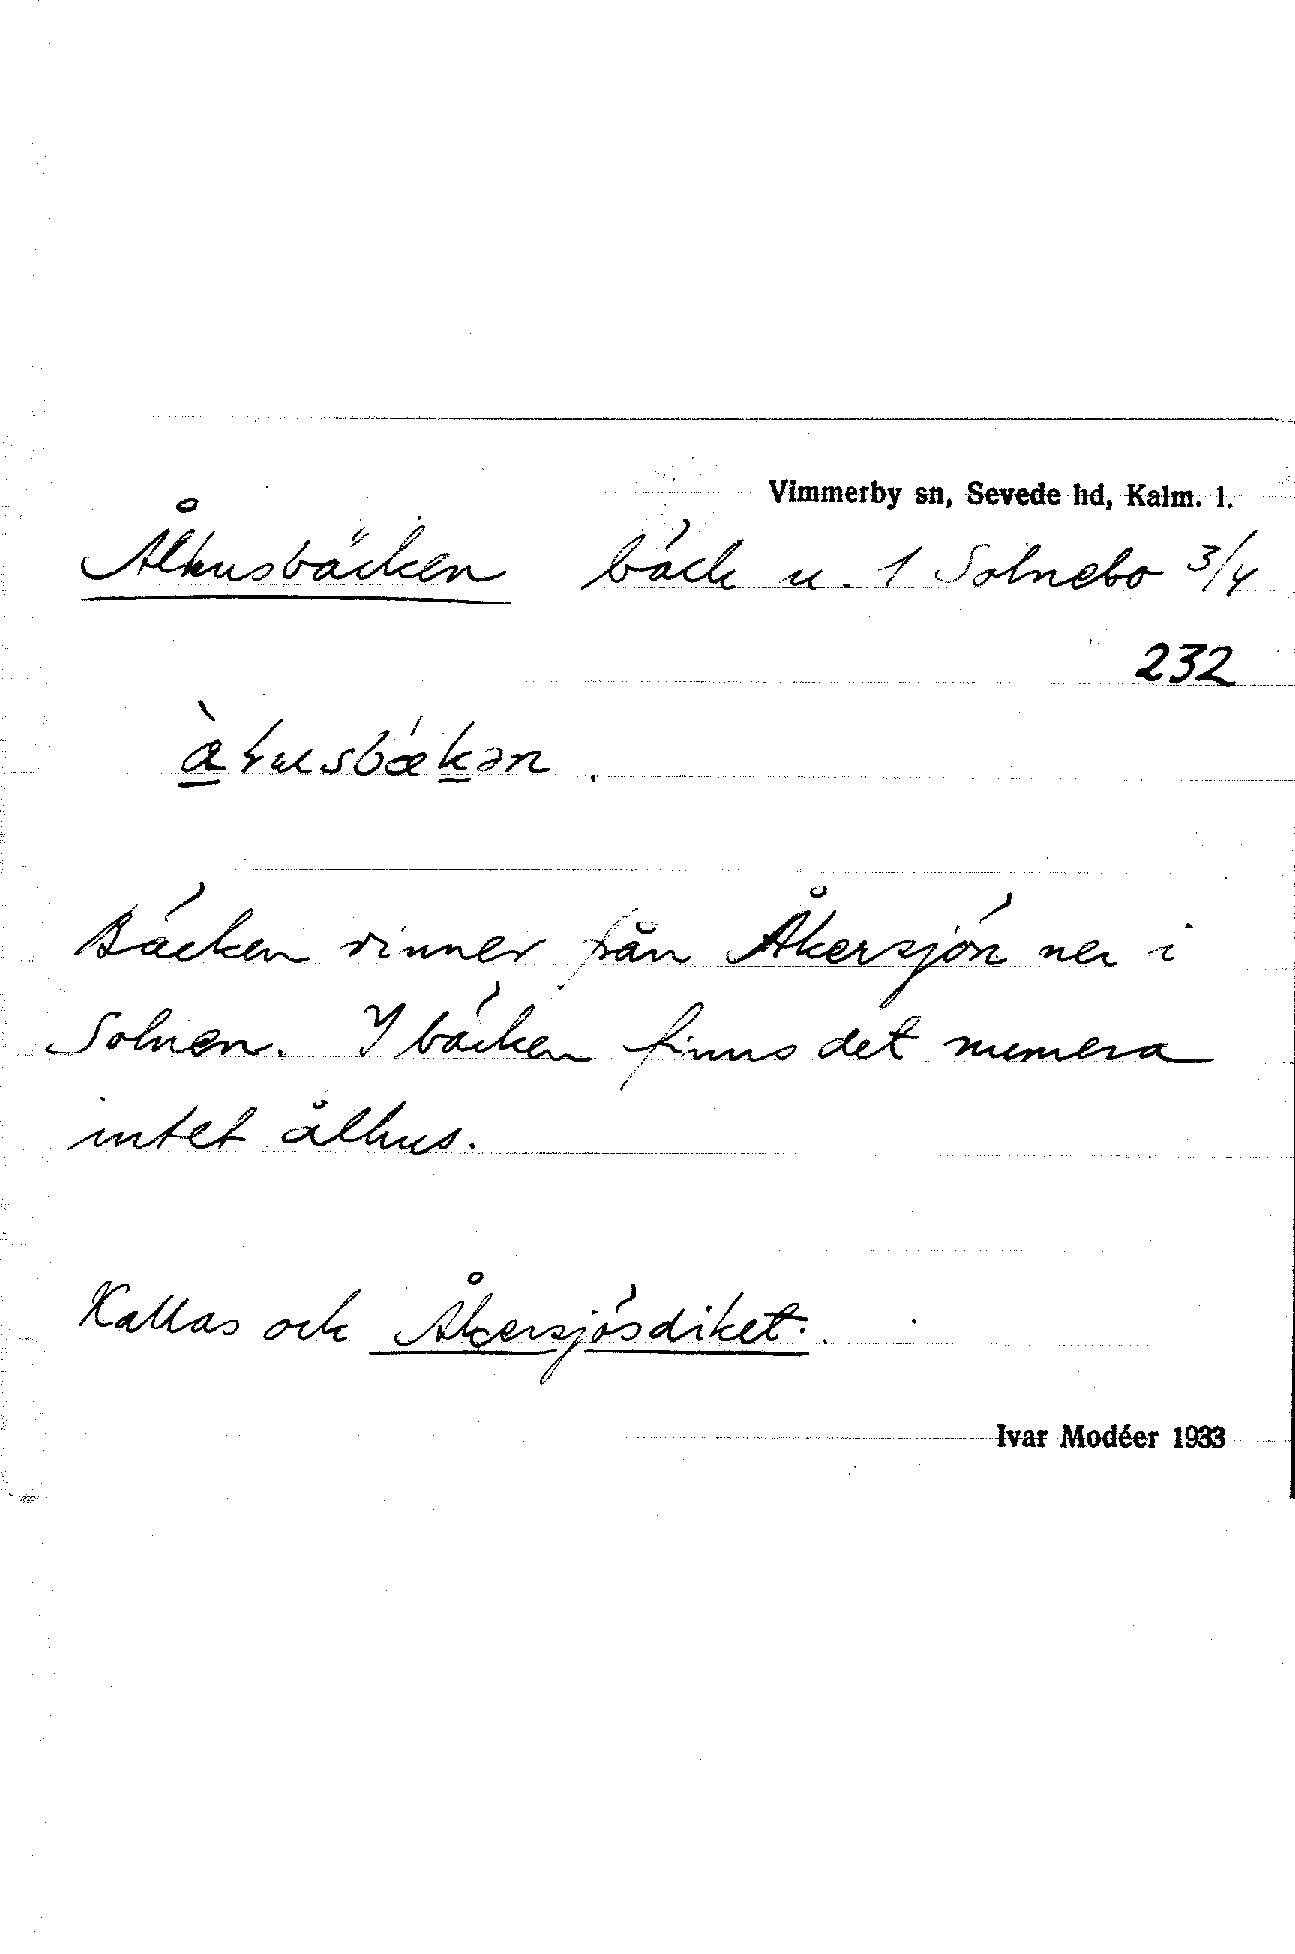 Vimmerby sn, Sevede hd, Kalm. l.
Ålhusbäcken bäck u. 1 Solnebo 3/4
232
Bäcken rinner från Åkersjön ner i
Solnen. I bäcken finns det numera
intet ålhus.
Kallas ock Åkersjösdiket.
Ivar Modéer 1933